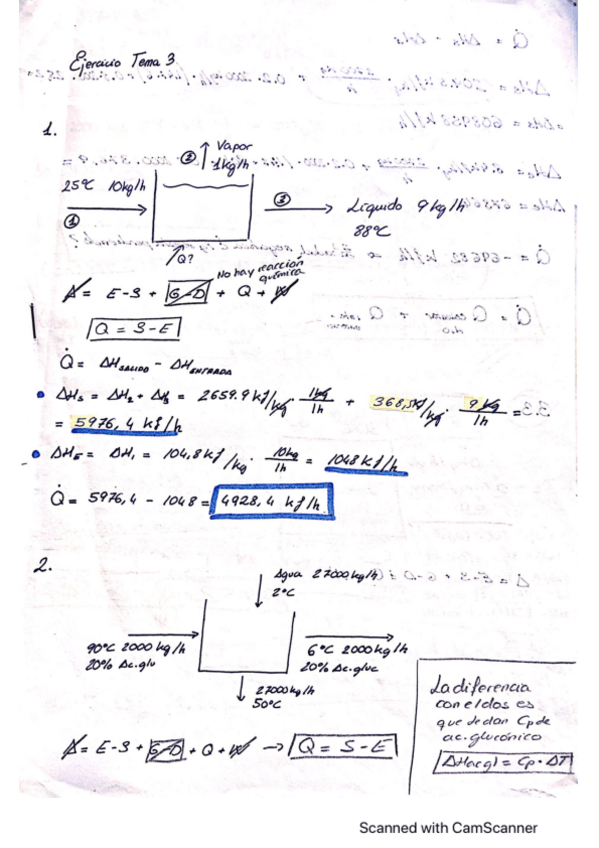 Ejercicio Tema 3
1.
Vapor
② 1kg/h
25ºC 10kg/h
①
③
Líquido 9 kg/h
88ºC
Q?
No hay reacción
química
A = E-S + G-D + Q + W
Q = S-E
Q̇ = ΔH SALIDO - ΔH ENTRADA
• ΔHs = ΔH₂ + ΔH₃ = 2659.9 kJ/kg · 1kg/1h + 368,5kJ/kg · 9kg/1h =
= 5976,4 kJ/h
• ΔHE = ΔH₁ = 104,8 kJ/kg · 10kg/1h = 1048 kJ/h
Q̇ = 5976,4 - 1048 = 4928,4 kJ/h.
2.
Agua 27000 kg/h
2ºC
90ºC 2000 kg/h
20% Ac.glu
6ºC 2000 kg/h
20% Ac.gluc
27000kg/h
50ºC
La diferencia
con el dos es
que te dan Cp de
ac. glucónico
ΔHacgl = Cp · ΔT
A = E-S + G-D + Q + W → Q = S-E
Scanned with CamScanner